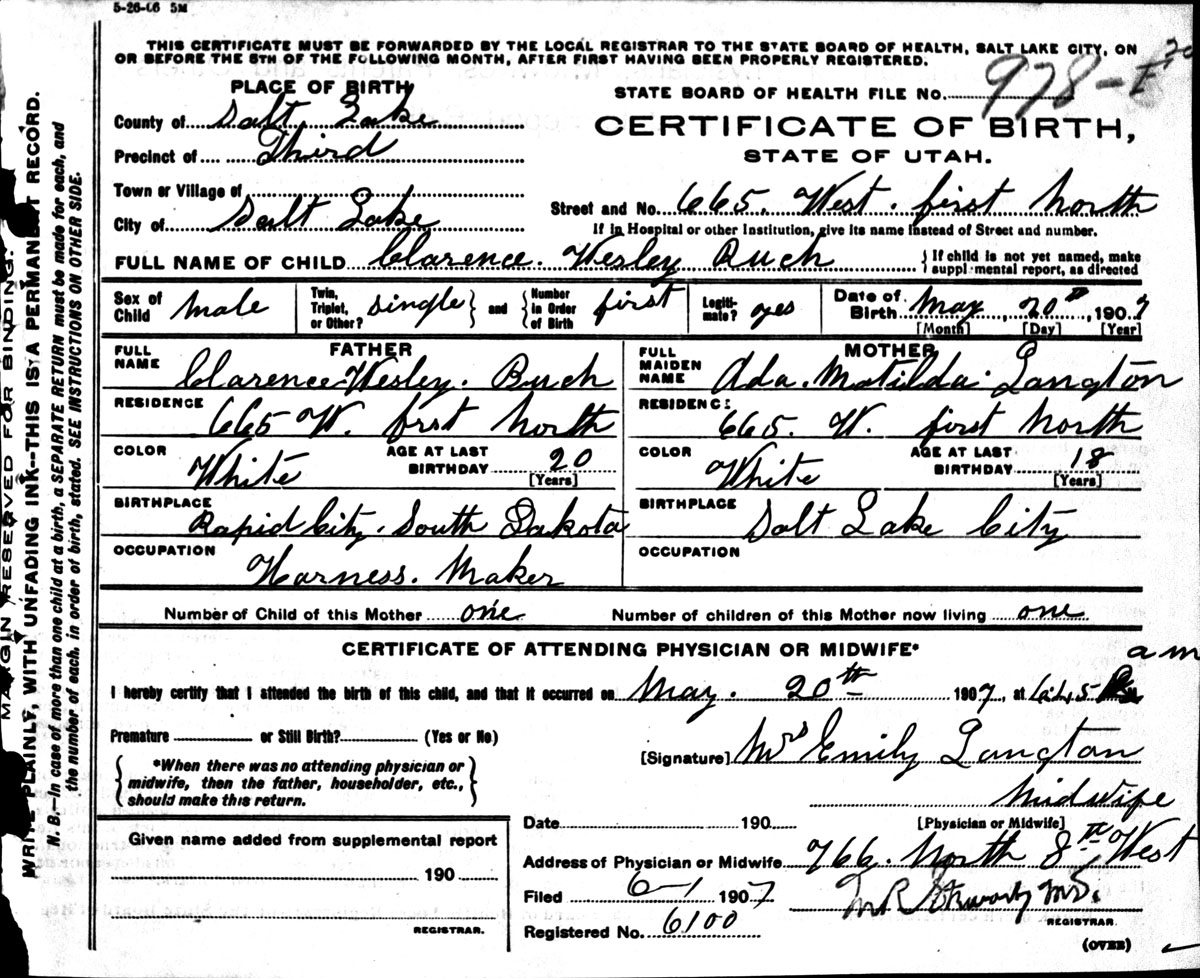 5-26-06 5M
THIS CERTIFICATE MUST BE FORWARDED BY THE LOCAL REGISTRAR TO THE STATE BOARD OF HEALTH, SALT LAKE CITY, ON
OR BEFORE THE 5TH OF THE FOLLOWING MONTH, AFTER FIRST HAVING BEEN PROPERLY REGISTERED.
PLACE OF BIRTH
STATE BOARD OF HEALTH FILE No. 978-
County of Salt Lake
CERTIFICATE OF BIRTH,
Precinct of Third
STATE OF UTAH.
Town or Village of
City of Salt Lake
Street and No. 665. West. first North
If in Hospital or other Institution, give its name instead of Street and number.
FULL NAME OF CHILD Clarence. Wesley Buch
{If child is not yet named, make
supplemental report, as directed
Sex of Child male
Twin, Triplet, or Other? single } and { Number in Order of Birth first
Legitimate? yes
Date of Birth May, 20th, 1907
[Month] [Day] [Year]
FATHER
FULL NAME Clarence Wesley. Buch
RESIDENCE 665 W. frst North
COLOR White
AGE AT LAST BIRTHDAY 20
[Years]
BIRTHPLACE Rapid City. South Dakota
OCCUPATION Harness. Maker
MOTHER
FULL MAIDEN NAME Ada. Matilda. Langton
RESIDENCE 665. W. first North
COLOR White
AGE AT LAST BIRTHDAY 18
[Years]
BIRTHPLACE Salt Lake City
OCCUPATION
Number of Child of this Mother one
Number of children of this Mother now living one
CERTIFICATE OF ATTENDING PHYSICIAN OR MIDWIFE*
am
I hereby certify that I attended the birth of this child, and that it occurred on May. 20th 1907, at
Premature or Still Birth? (Yes or No)
[Signature] Mrs Emily Langton
{*When there was no attending physician or
midwife, then the father, householder, etc.,
should make this return.}
Midwife
[Physician or Midwife]
Date 190
Given name added from supplemental report
190
REGISTRAR.
Address of Physician or Midwife 766. North 8th West
Filed 6-1 1907
M.D.
REGISTRAR.
Registered No. 6100
(OVER)
MARGIN RESERVED FOR BINDING.
WRITE PLAINLY, WITH UNFADING INK--THIS IS A PERMANENT RECORD.
N. B.--In case of more than one child at a birth, a SEPARATE RETURN must be made for each, and
the number of each, in order of birth, stated. SEE INSTRUCTIONS ON OTHER SIDE.